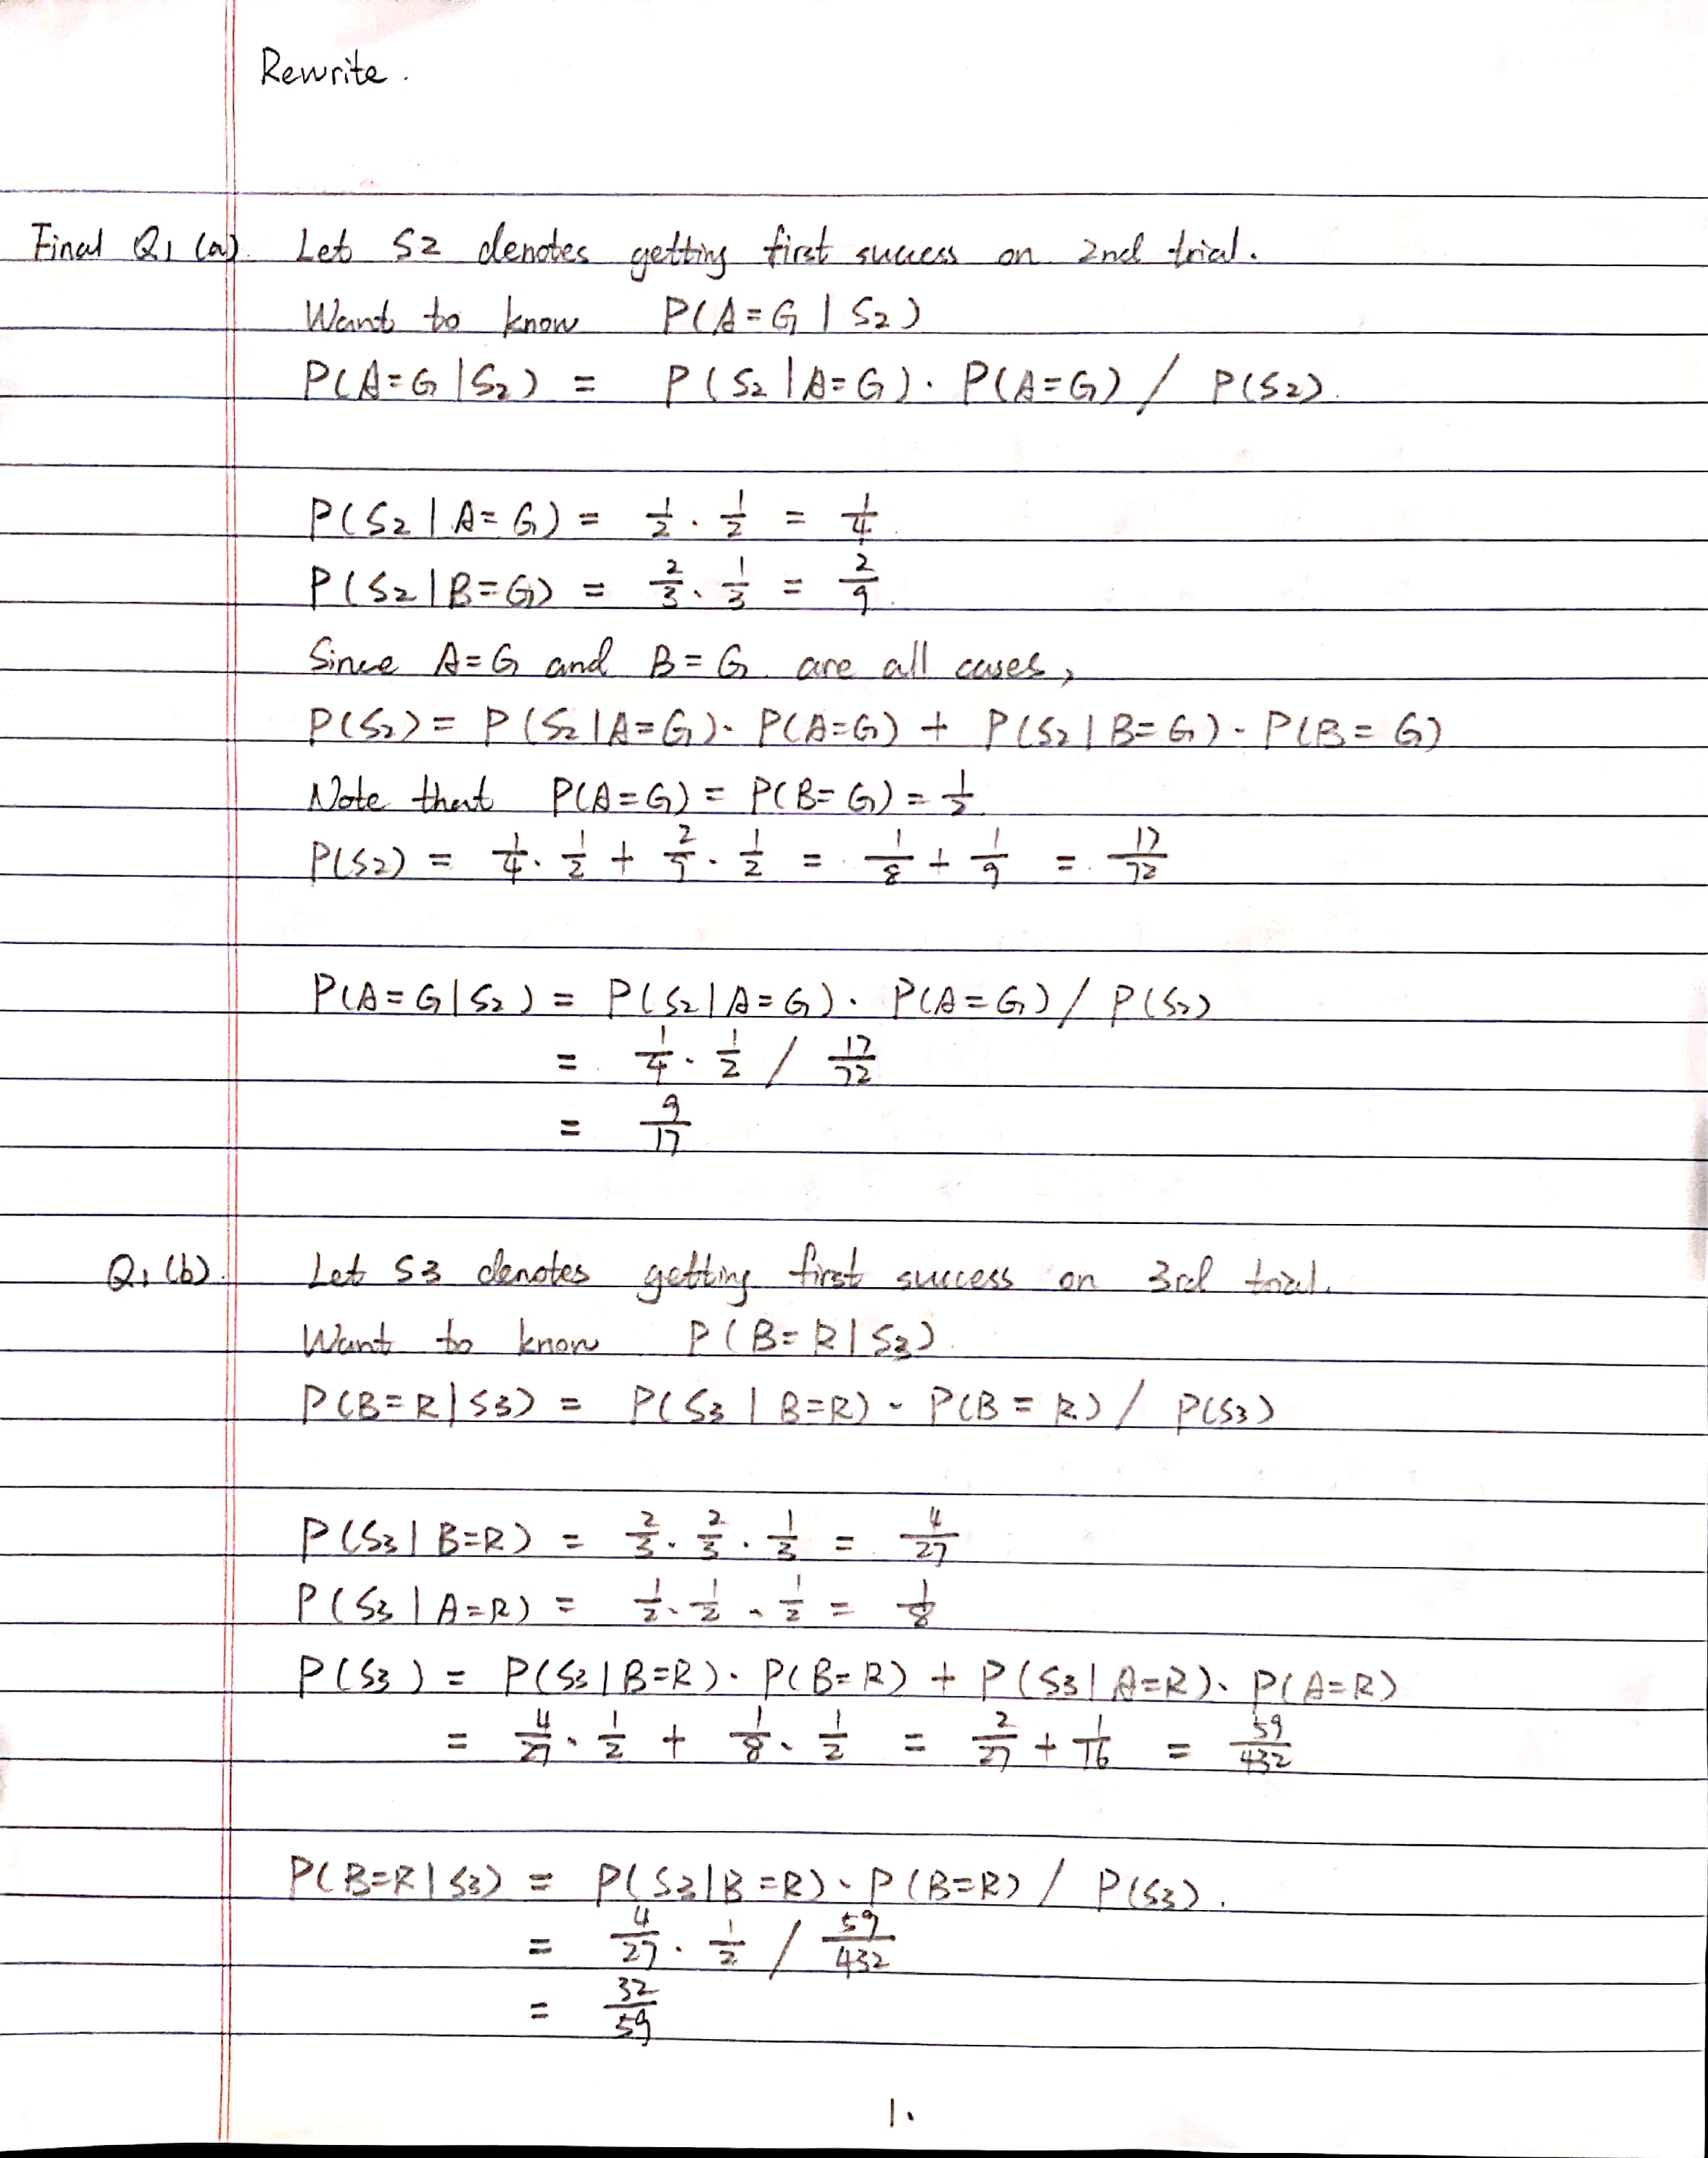 Rewrite.
Final Q1 (a). Let S2 denotes getting first success on 2nd trial.
Want to know P(A=G | S2)
P(A=G | S2) = P(S2 | A=G) · P(A=G) / P(S2).
P(S2 | A=G) = 1/2 · 1/2 = 1/4
P(S2 | B=G) = 2/3 · 1/3 = 2/9.
Since A=G and B=G are all cases,
P(S2) = P(S2 | A=G) · P(A=G) + P(S2 | B=G) · P(B=G)
Note that P(A=G) = P(B=G) = 1/2.
P(S2) = 1/4 · 1/2 + 2/9 · 1/2 = 1/8 + 1/9 = 17/72
P(A=G | S2) = P(S2 | A=G) · P(A=G) / P(S2)
= 1/4 · 1/2 / 17/72
= 9/17
Q1 (b). Let S3 denotes getting first success on 3rd trial.
Want to know P(B=R | S3)
P(B=R | S3) = P(S3 | B=R) · P(B=R) / P(S3)
P(S3 | B=R) = 2/3 · 2/3 · 1/3 = 4/27
P(S3 | A=R) = 1/2 · 1/2 · 1/2 = 1/8
P(S3) = P(S3 | B=R) · P(B=R) + P(S3 | A=R) · P(A=R)
= 4/27 · 1/2 + 1/8 · 1/2 = 2/27 + 1/16 = 59/432
P(B=R | S3) = P(S3 | B=R) · P(B=R) / P(S3).
= 4/27 · 1/2 / 59/432
= 32/59
1.